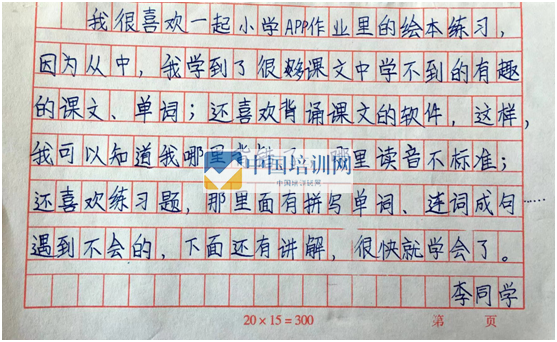 我很喜欢一起小学APP作业里的绘本练习，
因为从中，我学到了很多课文中学不到的有趣
的课文、单词；还喜欢背诵课文的软件，这样，
我可以知道我哪里背错了，哪里读音不标准；
中国培训网
中国培训结果
还喜欢练习题，那里面有拼写单词、连词成句……
遇到不会的，下面还有讲解，很快就学会了。
李同学
20×15=300
第 页